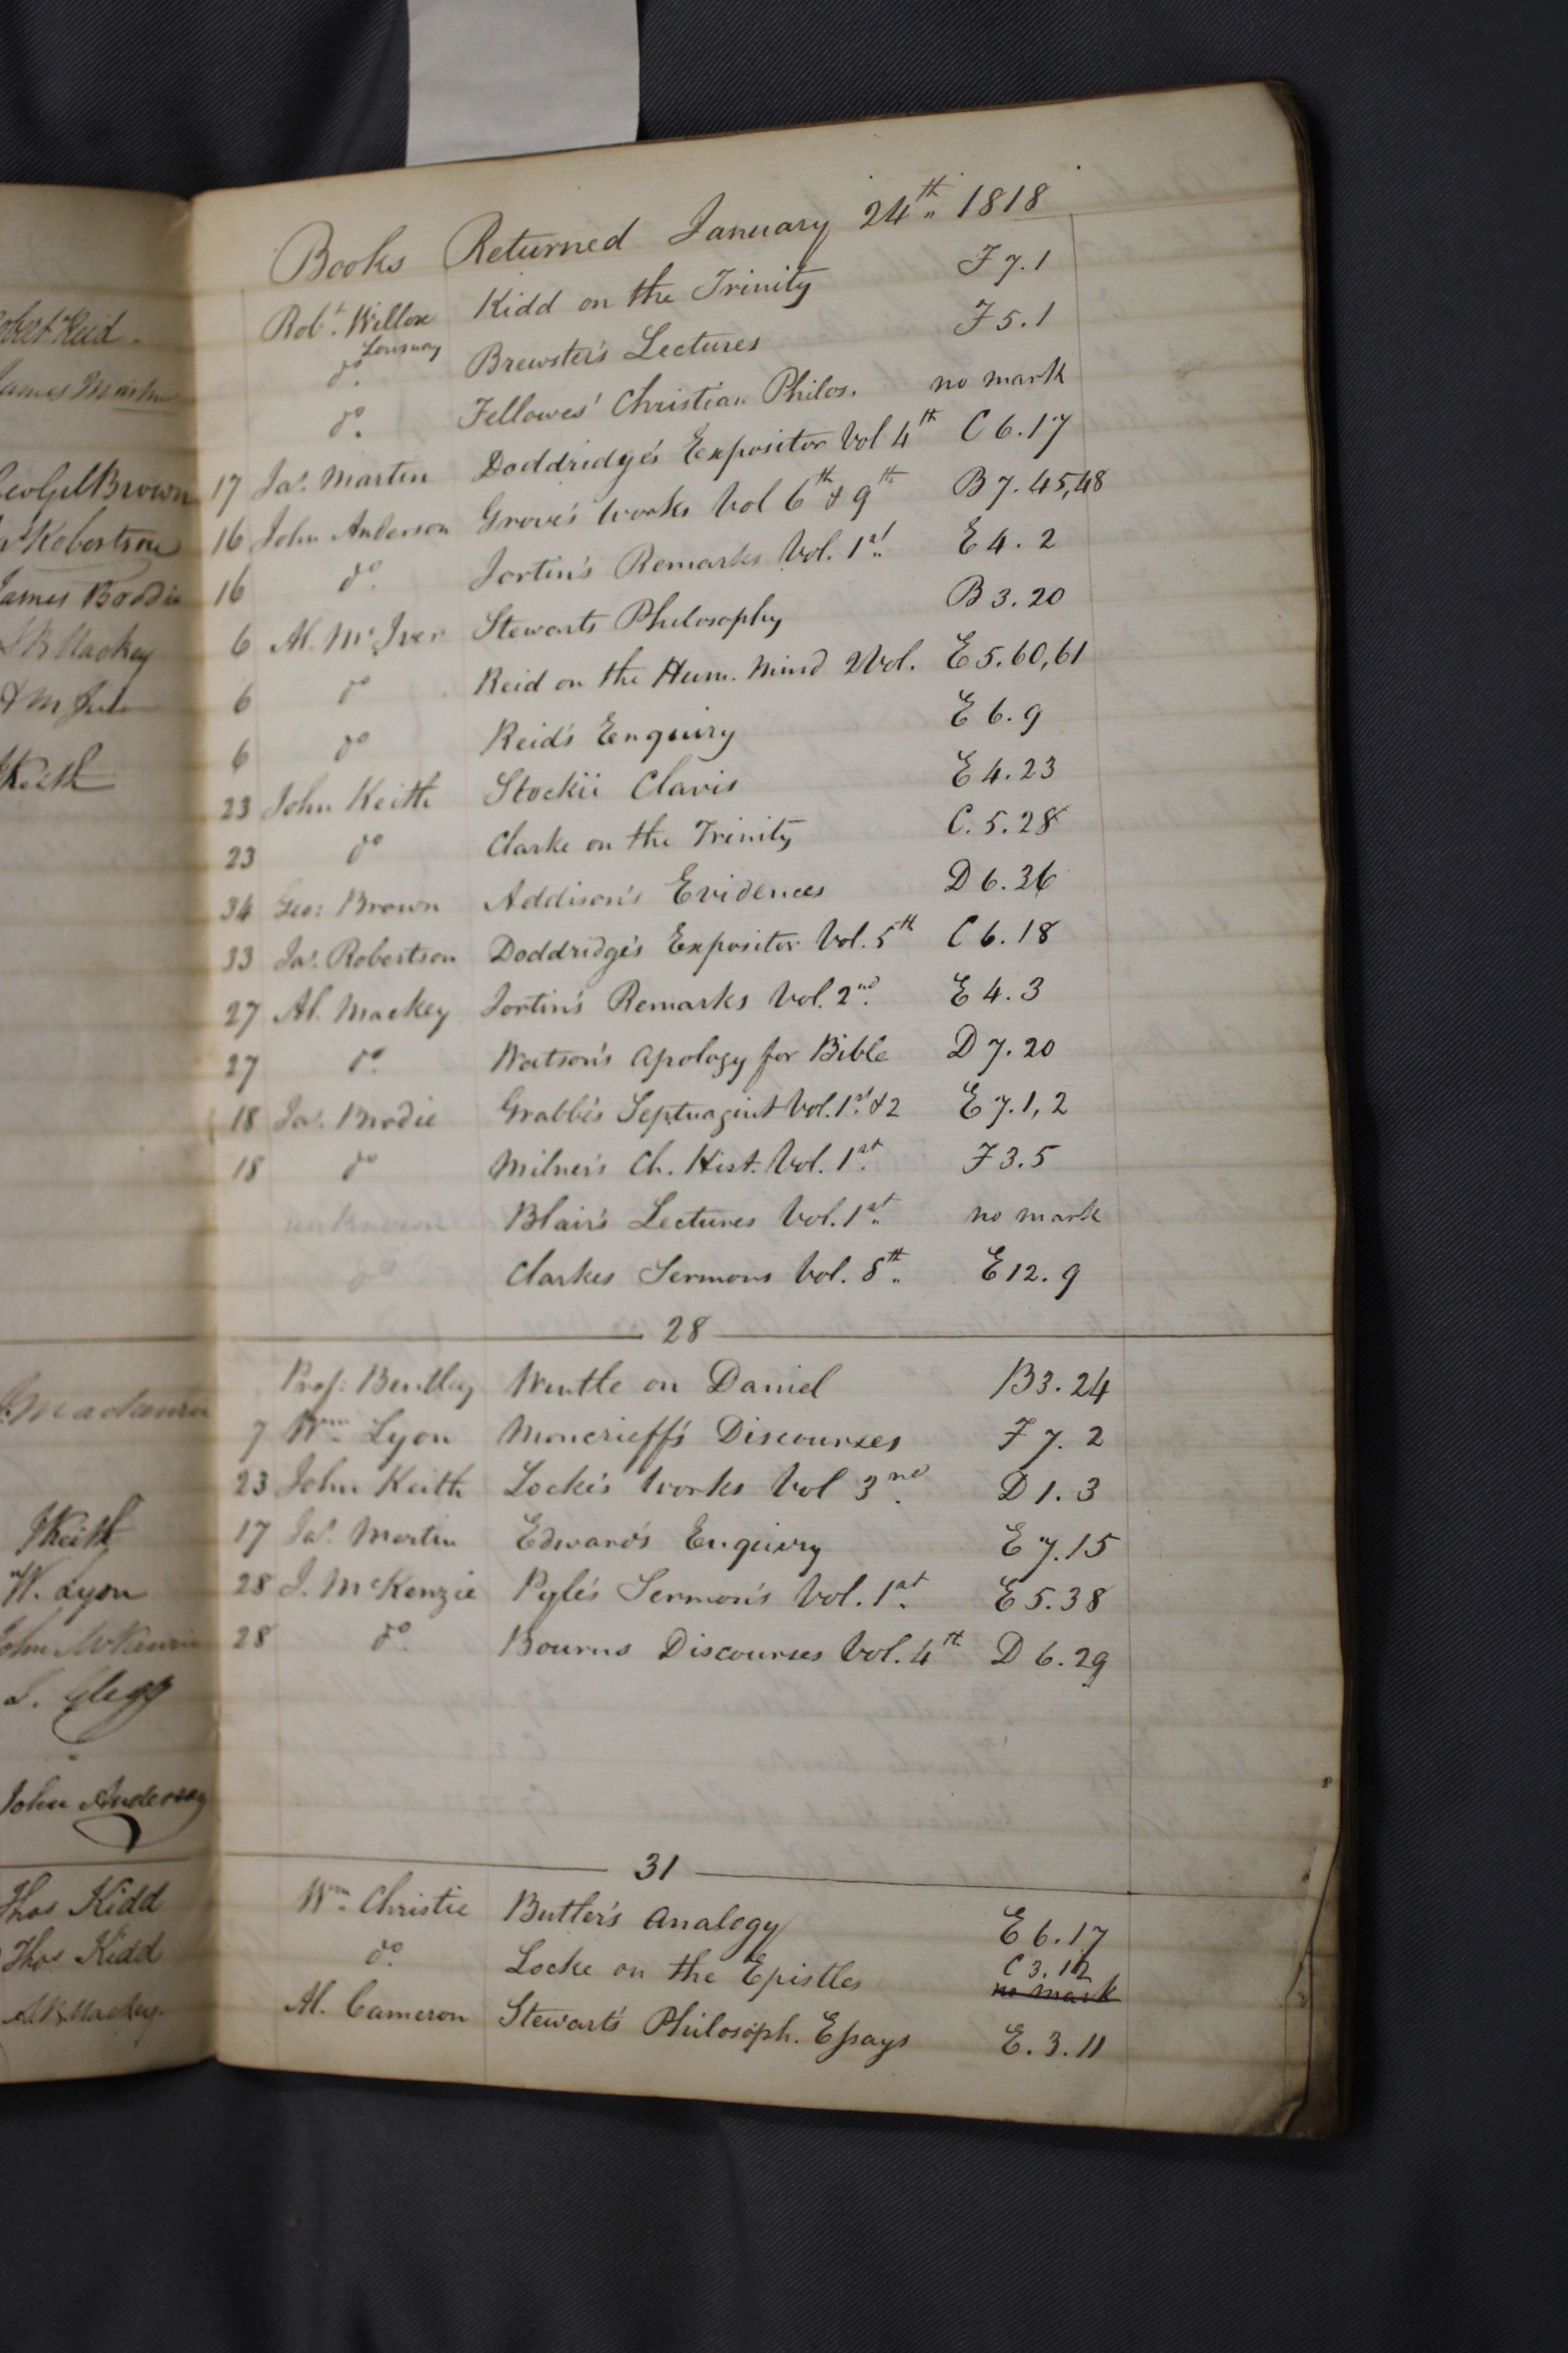 Books Returned January 24th 1818
Robt. Willox Kidd on the Trinity F 7.1
Lonmay
do. Brewster's Lectures F 5.1
do. Fellowes' Christian Philos. no mark
17 Jas. Martin Doddridge's Expositor Vol 4th C 6.17
16 John Anderson Grove's Works Vol 6th & 9th B 7.45,48
16 do. Jortin's Remarks Vol. 1st E 4.2
6 Al. McIver Stewarts Philosophy B 3.20
6 do Reid on the Hum. Mind 2 Vol. E 5.60,61
6 do Reid's Enquiry E 6.9
23 John Keith Stockii Clavis E 4.23
23 do Clarke on the Trinity C. 5.28
34 Geo: Brown Addison's Evidences D 6.36
33 Jas. Robertson Doddridge's Expositor Vol. 5th C 6.18
27 Al. Mackey Jortin's Remarks Vol. 2nd. E 4.3
27 do. Watson's Apology for Bible D 7.20
18 Jas. Brodie Grabbe's Septuagint Vol. 1st. & 2 E 7.1,2
18 do Milner's Ch. Hist. Vol. 1st. F 3.5
unknown Blair's Lectures Vol. 1st no mark
do Clarkes Sermons Vol. 8th E 12.9
28
Prof: Bentley Wintle on Daniel B 3.24
7 Wm. Lyon Moncrieff's Discourses F 7.2
23 John Keith Locke's Works Vol 3nd. D 1.3
17 Jas. Martin Edward's Enquiry E 7.15
28 J. McKenzie Pyle's Sermon's Vol. 1st. E 5.38
28 do. Bourns Discourses Vol. 4th D 6.29
31
Wm. Christie Butler's Analogy E 6.17
do. Locke on the Epistles C 3.12
no mark
Al. Cameron Stewart's Philosoph. Essays E. 3.11
obert Reid
James Martin
Brown
Robertson
James Brodie
Mackey
Keith
JKeith
W. Lyon
John McKenzie
S. Clegg
John Anderson
Thos Kidd
Thos Kidd
Mackey